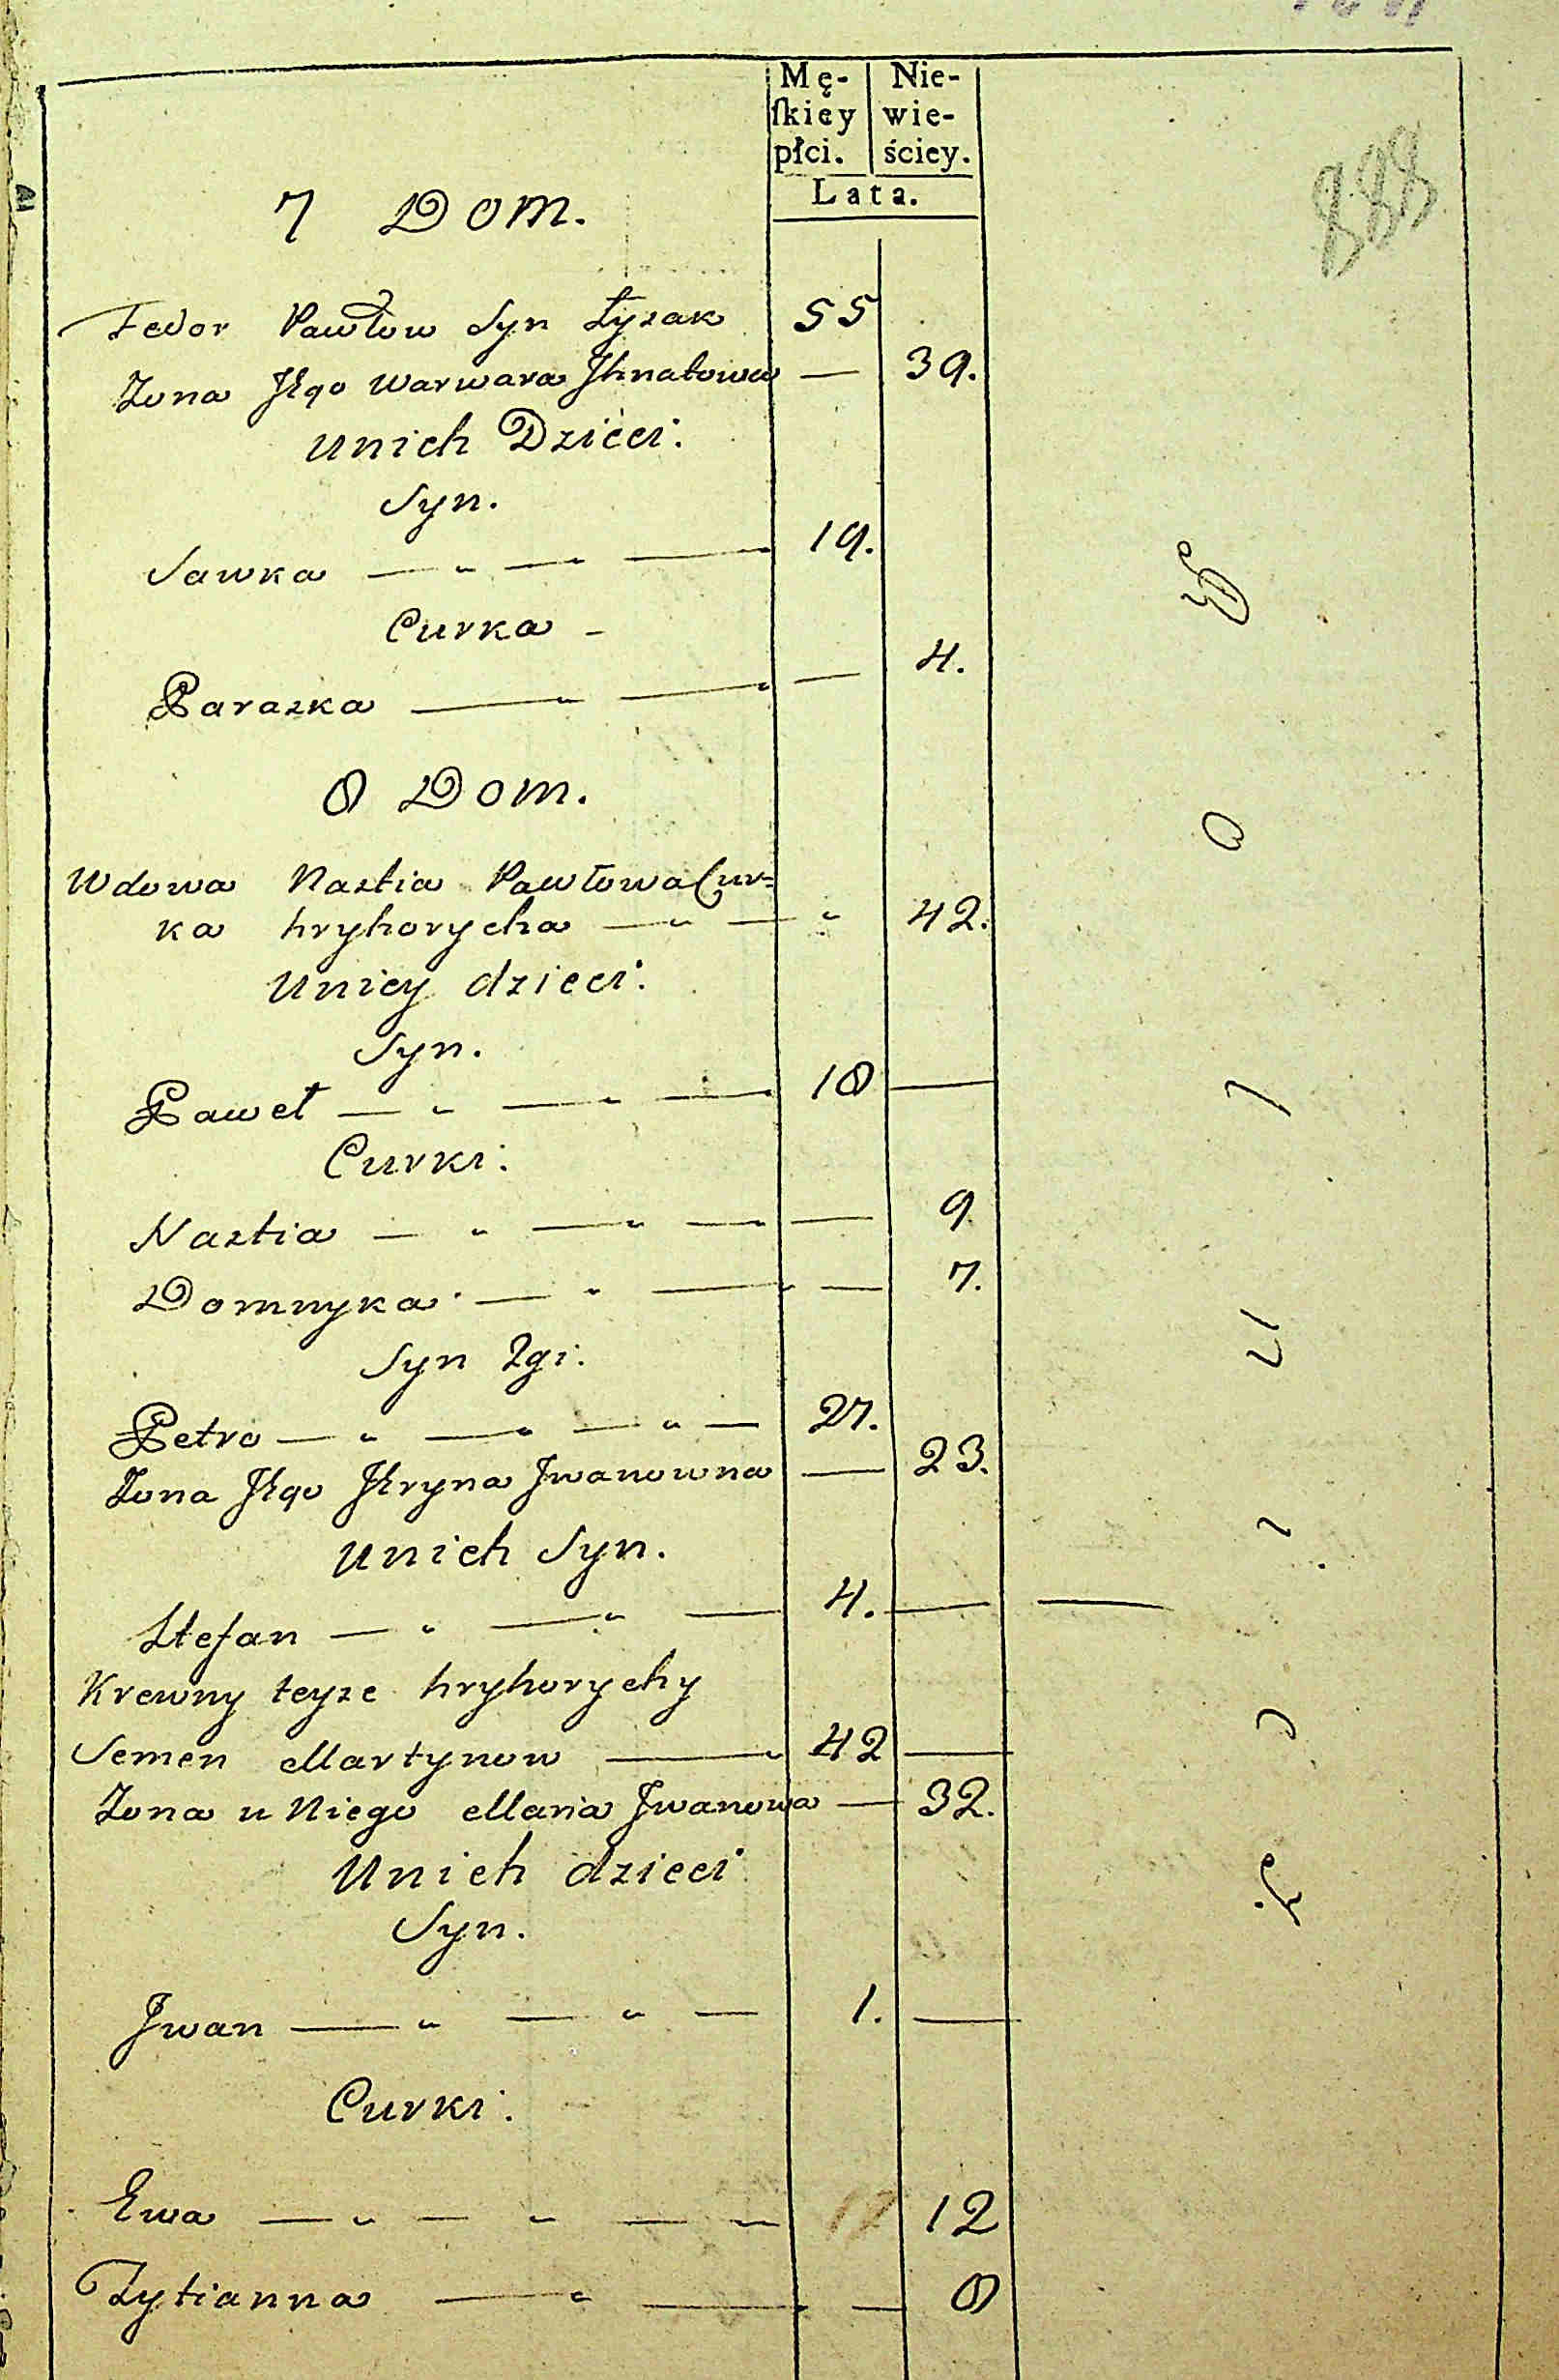 Mę- Nie-
ſkiey wie-
płci. ściey.
Lata.
888
7 Dom.
Fedor Pawłow Syn Łyzak 55
Zona Jego Warwara Jhnatowa — 39.
Unich Dzieci:
Syn.
Sawka — „ — „ — 19.
Curka –
Paraska — „ — „ — 4.
8 Dom.
Wdowa Nastia Pawłowa Cur=
ka hryhorycha — „ — „ 42.
Unicy dzieci:
Syn.
Paweł — „ — „ — „ 18 —
Curki:
Nastia — „ — „ — „ — 9
Domnyka — „ — „ — 7.
Syn 2gi:
Petro — „ — „ — „ — 27.
Zona Jego Jryna Jwanowna — 23.
Unich Syn.
Stefan — „ — „ — 4. — —
Krewny teyze hryhorychy
Semen Martynow — „ 42 —
Zona u Niego Maria Jwanowa — 32.
Unich dzieci
Syn.
Jwan — „ — „ — 1. —
Curki:
Ewa — „ — „ — „ 12
Tytianna — „ — — 8